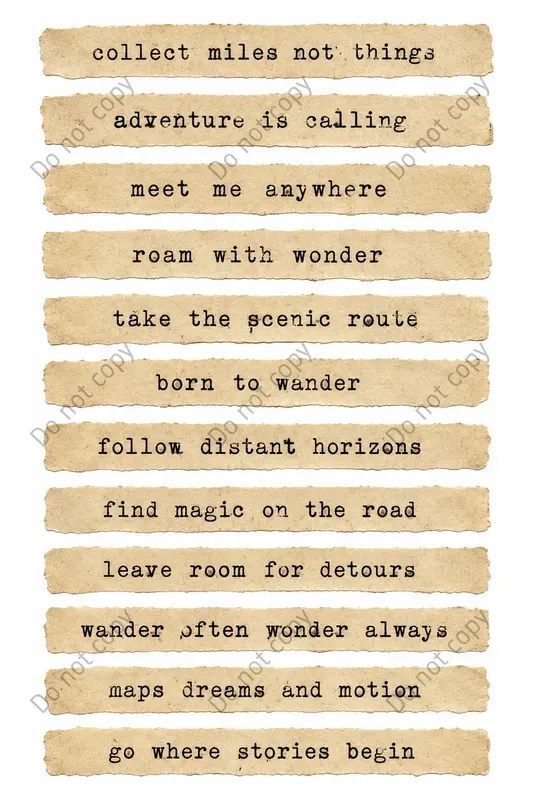 collect miles not things
adventure is calling
meet me anywhere
roam with wonder
take the scenic route
born to wander
follow distant horizons
find magic on the road
leave room for detours
wander often wonder always
maps dreams and motion
go where stories begin
Do not copy
Do not copy
Do not copy
Do not copy
Do not copy
Do not copy
Do not copy
Do not copy
Do not copy